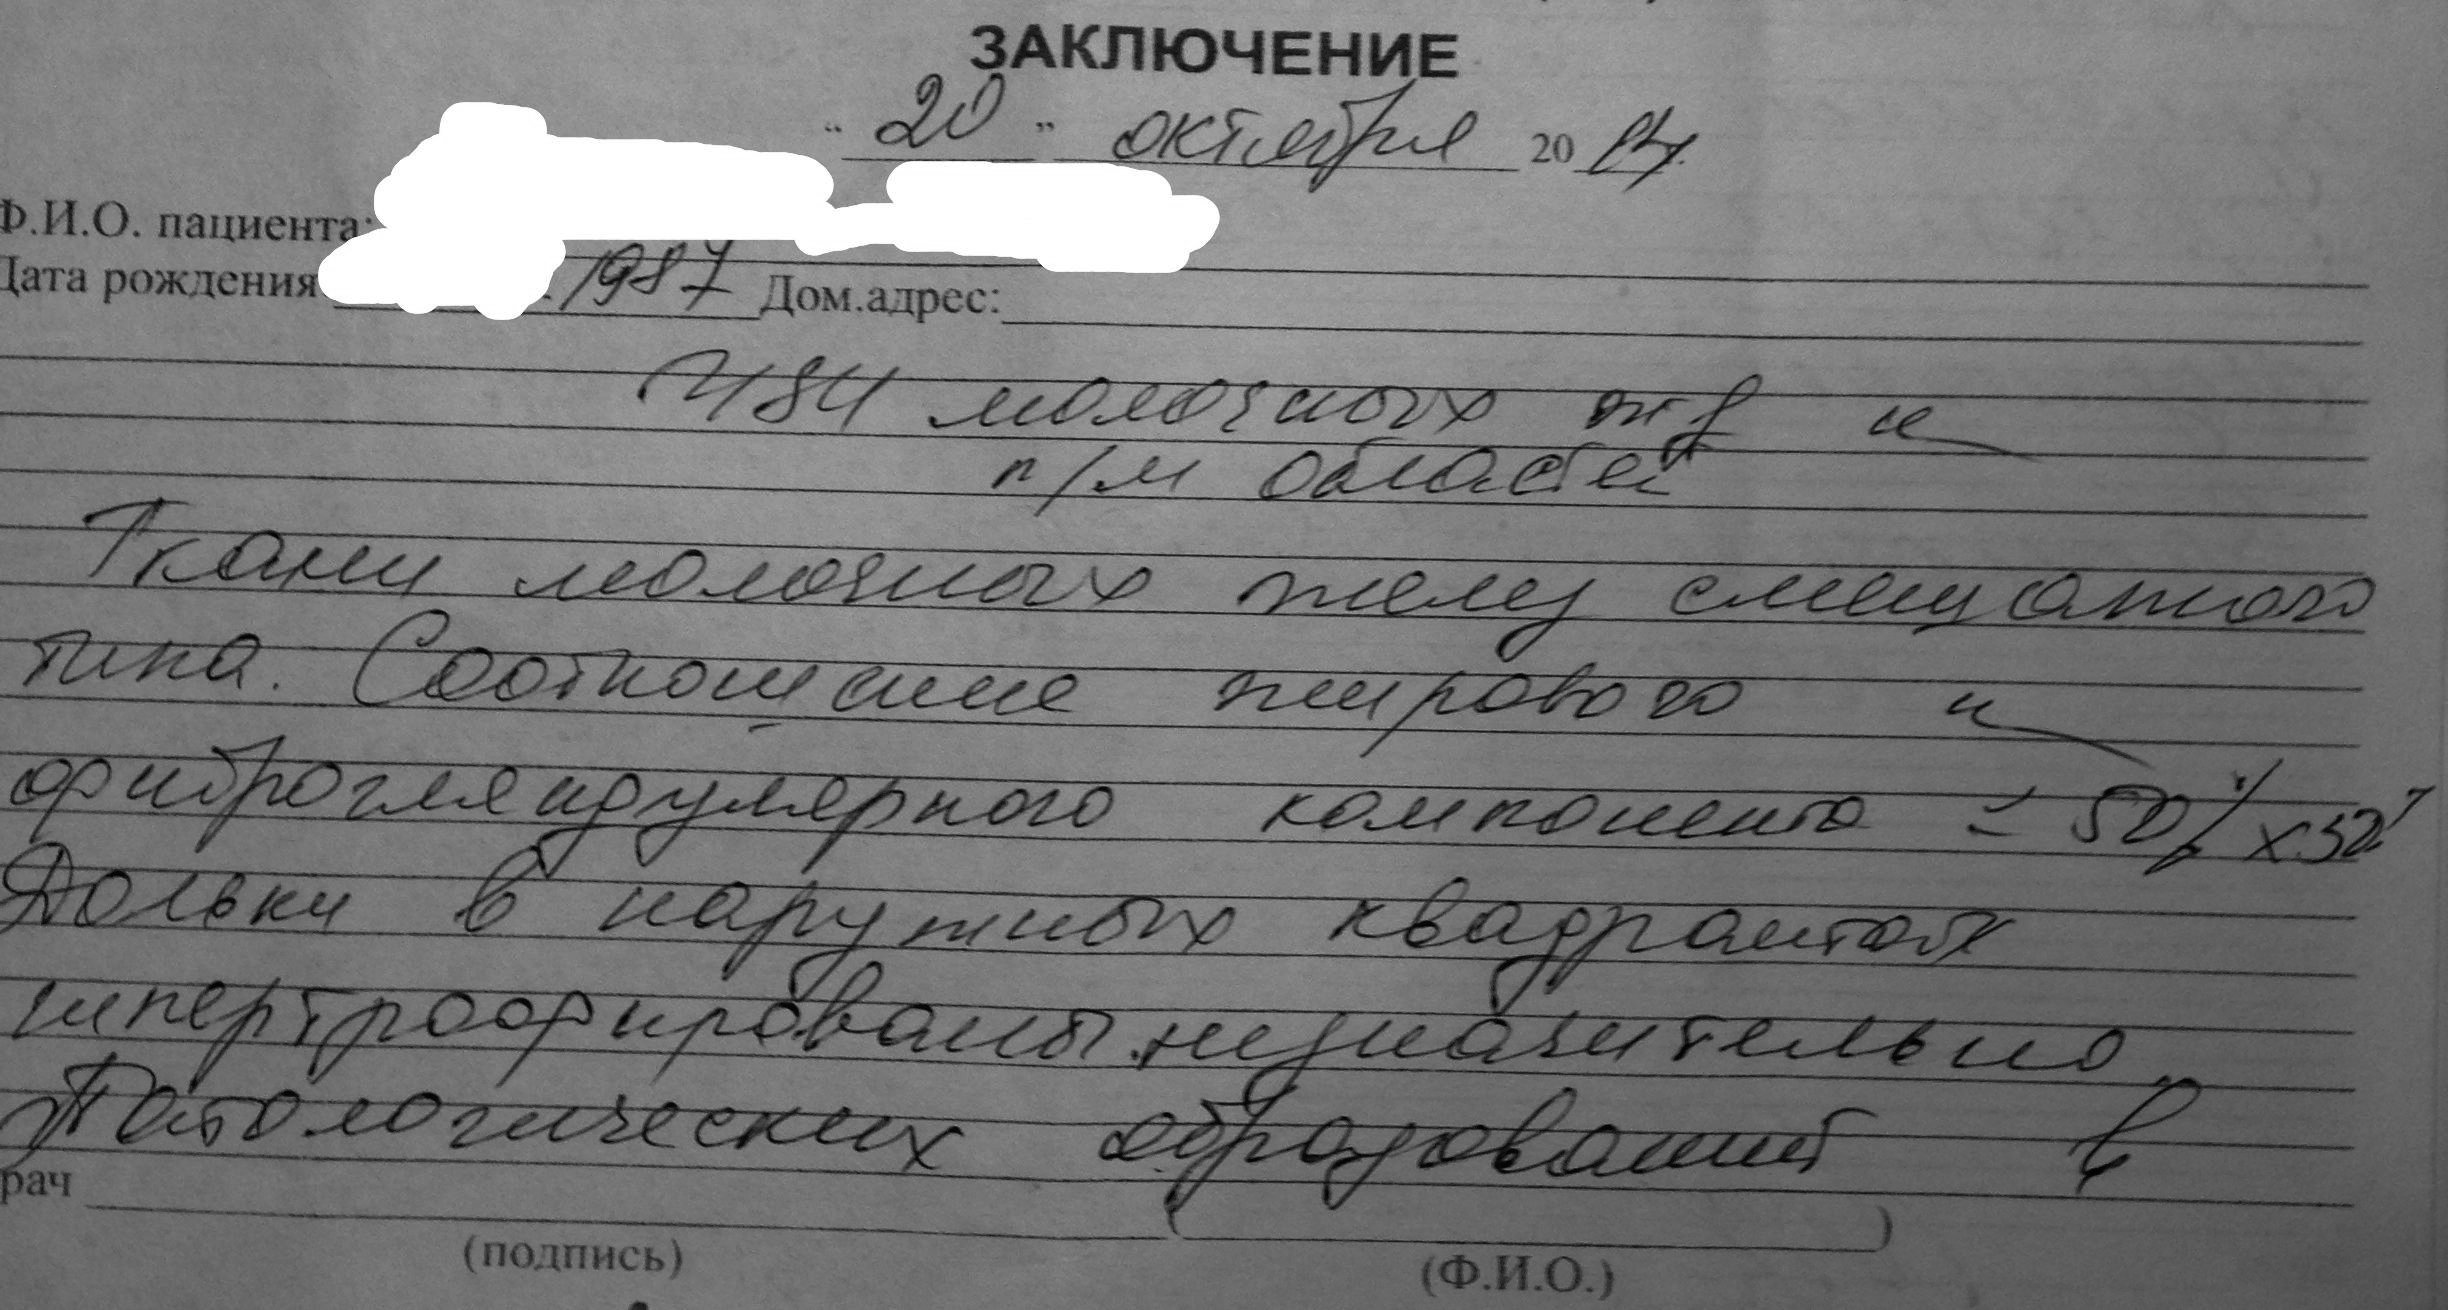 ЗАКЛЮЧЕНИЕ
" 20 " октября 20
Ф.И.О. пациента:
Дата рождения .1987 Дом.адрес:
УЗИ молочных ж-з и
п/м областей
Ткани молочных желез смешанного
типа. Соотношение жирового и
фиброгландулярного компонента = 50% х 50%
Дольки в наружных квадрантах
гипертрофированы незначительно.
Патологических образований в
рач
( )
(подпись) (Ф.И.О.)